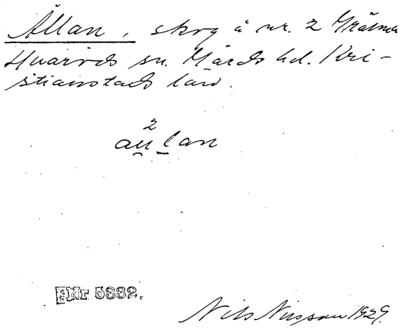 Ållan, skog å nr. 2
Huaröds sn. Gärds hd. Kri-
stianstads län.
2
au̯l̲an
PNr 5332.
Nils Nilsson 1929.